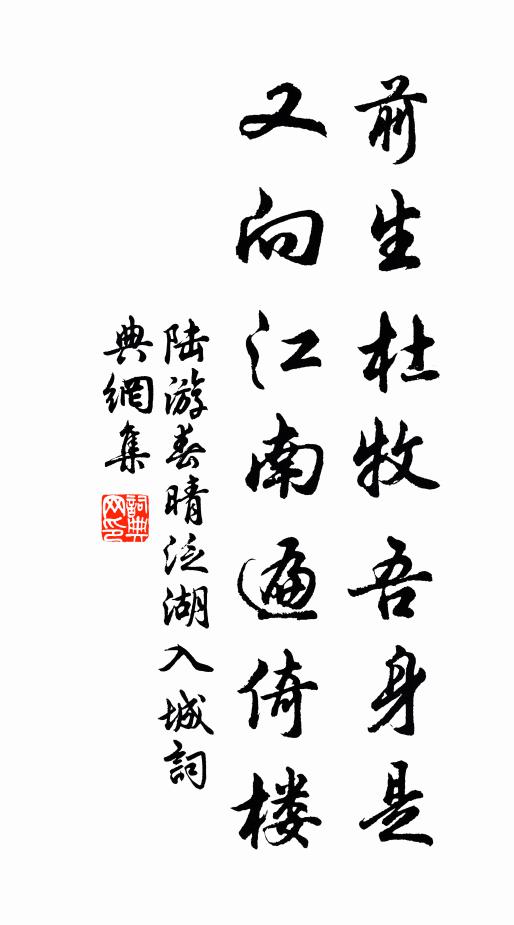 前生杜牧吾身是
又向江南遍倚楼
陆游春晴泛湖入城詞
典網集
詞典网印